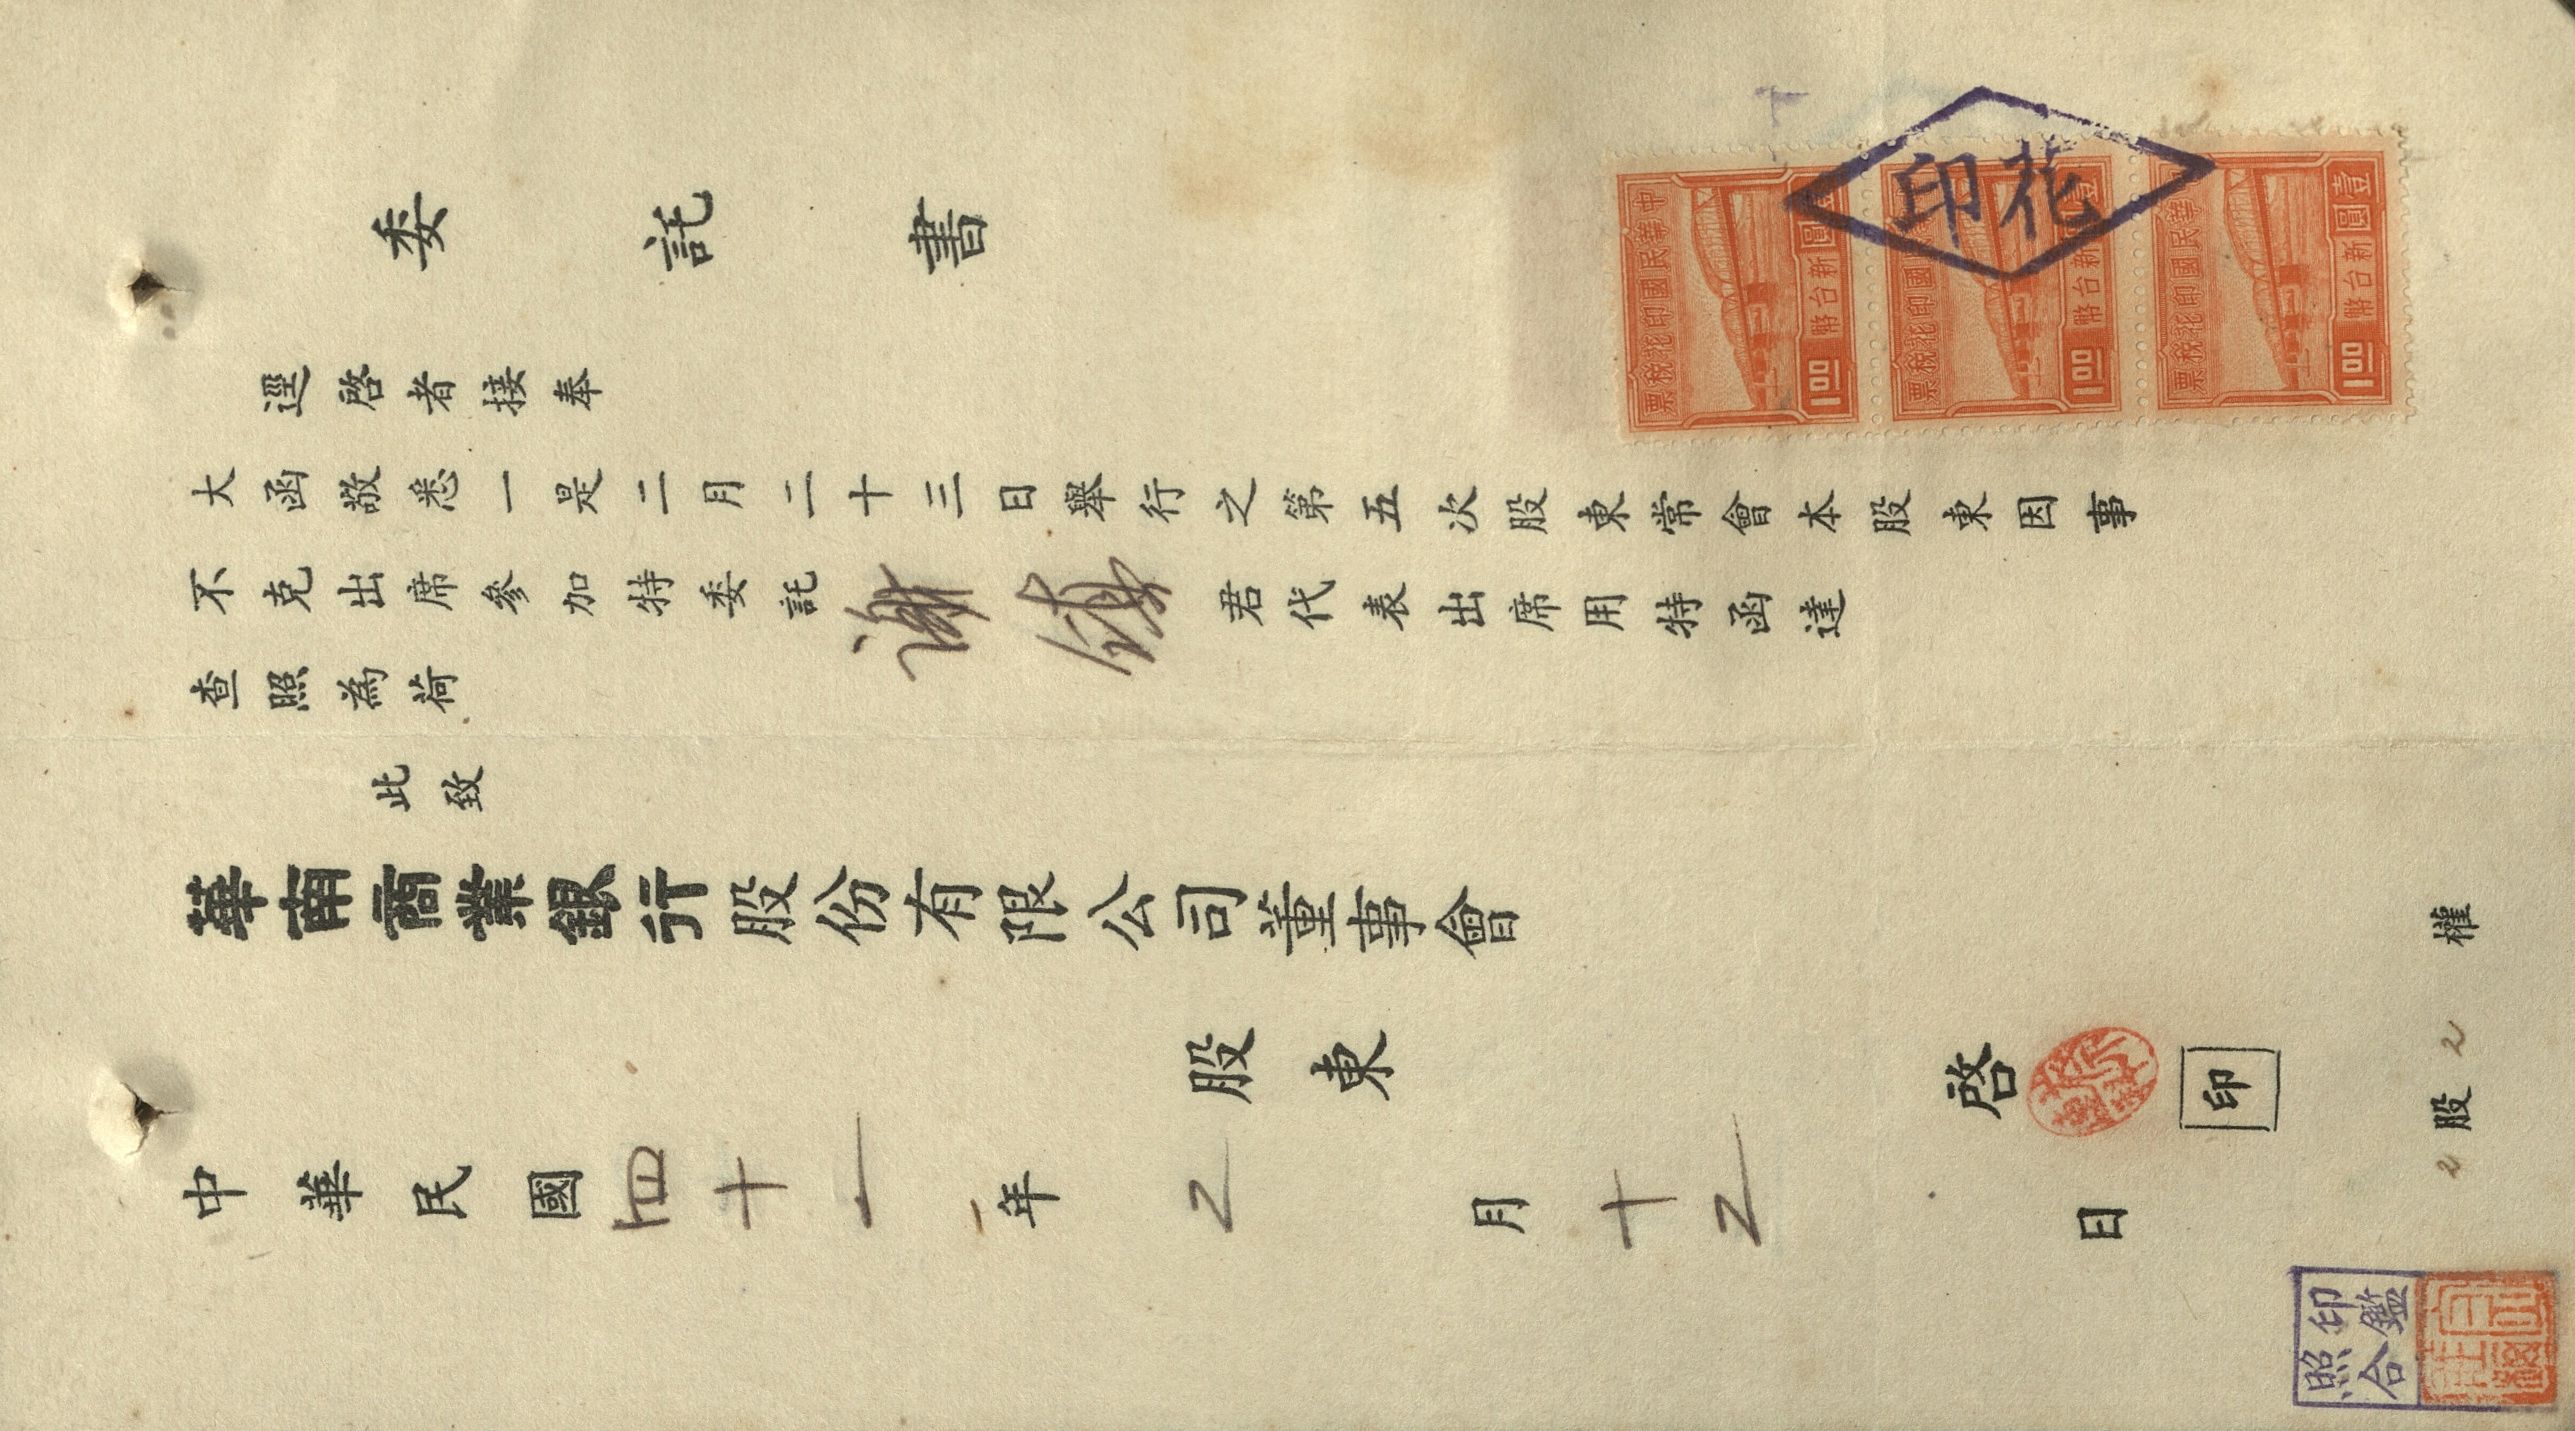 委託書
逕啓者接奉
大函敬悉一是二月二十三日舉行之第五次股東常會本股東因事
不克出席參加特委託謝 君代表出席用特函達
查照為荷
此致
華南商業銀行股份有限公司董事會
股東 啓 印
中華民國四十一年2月十2日
2股2權
中華民國印花稅票
壹圓 新台幣
1.00
中華民國印花稅票
壹圓 新台幣
1.00
中華民國印花稅票
壹圓 新台幣
1.00
印花
印鑑
照合